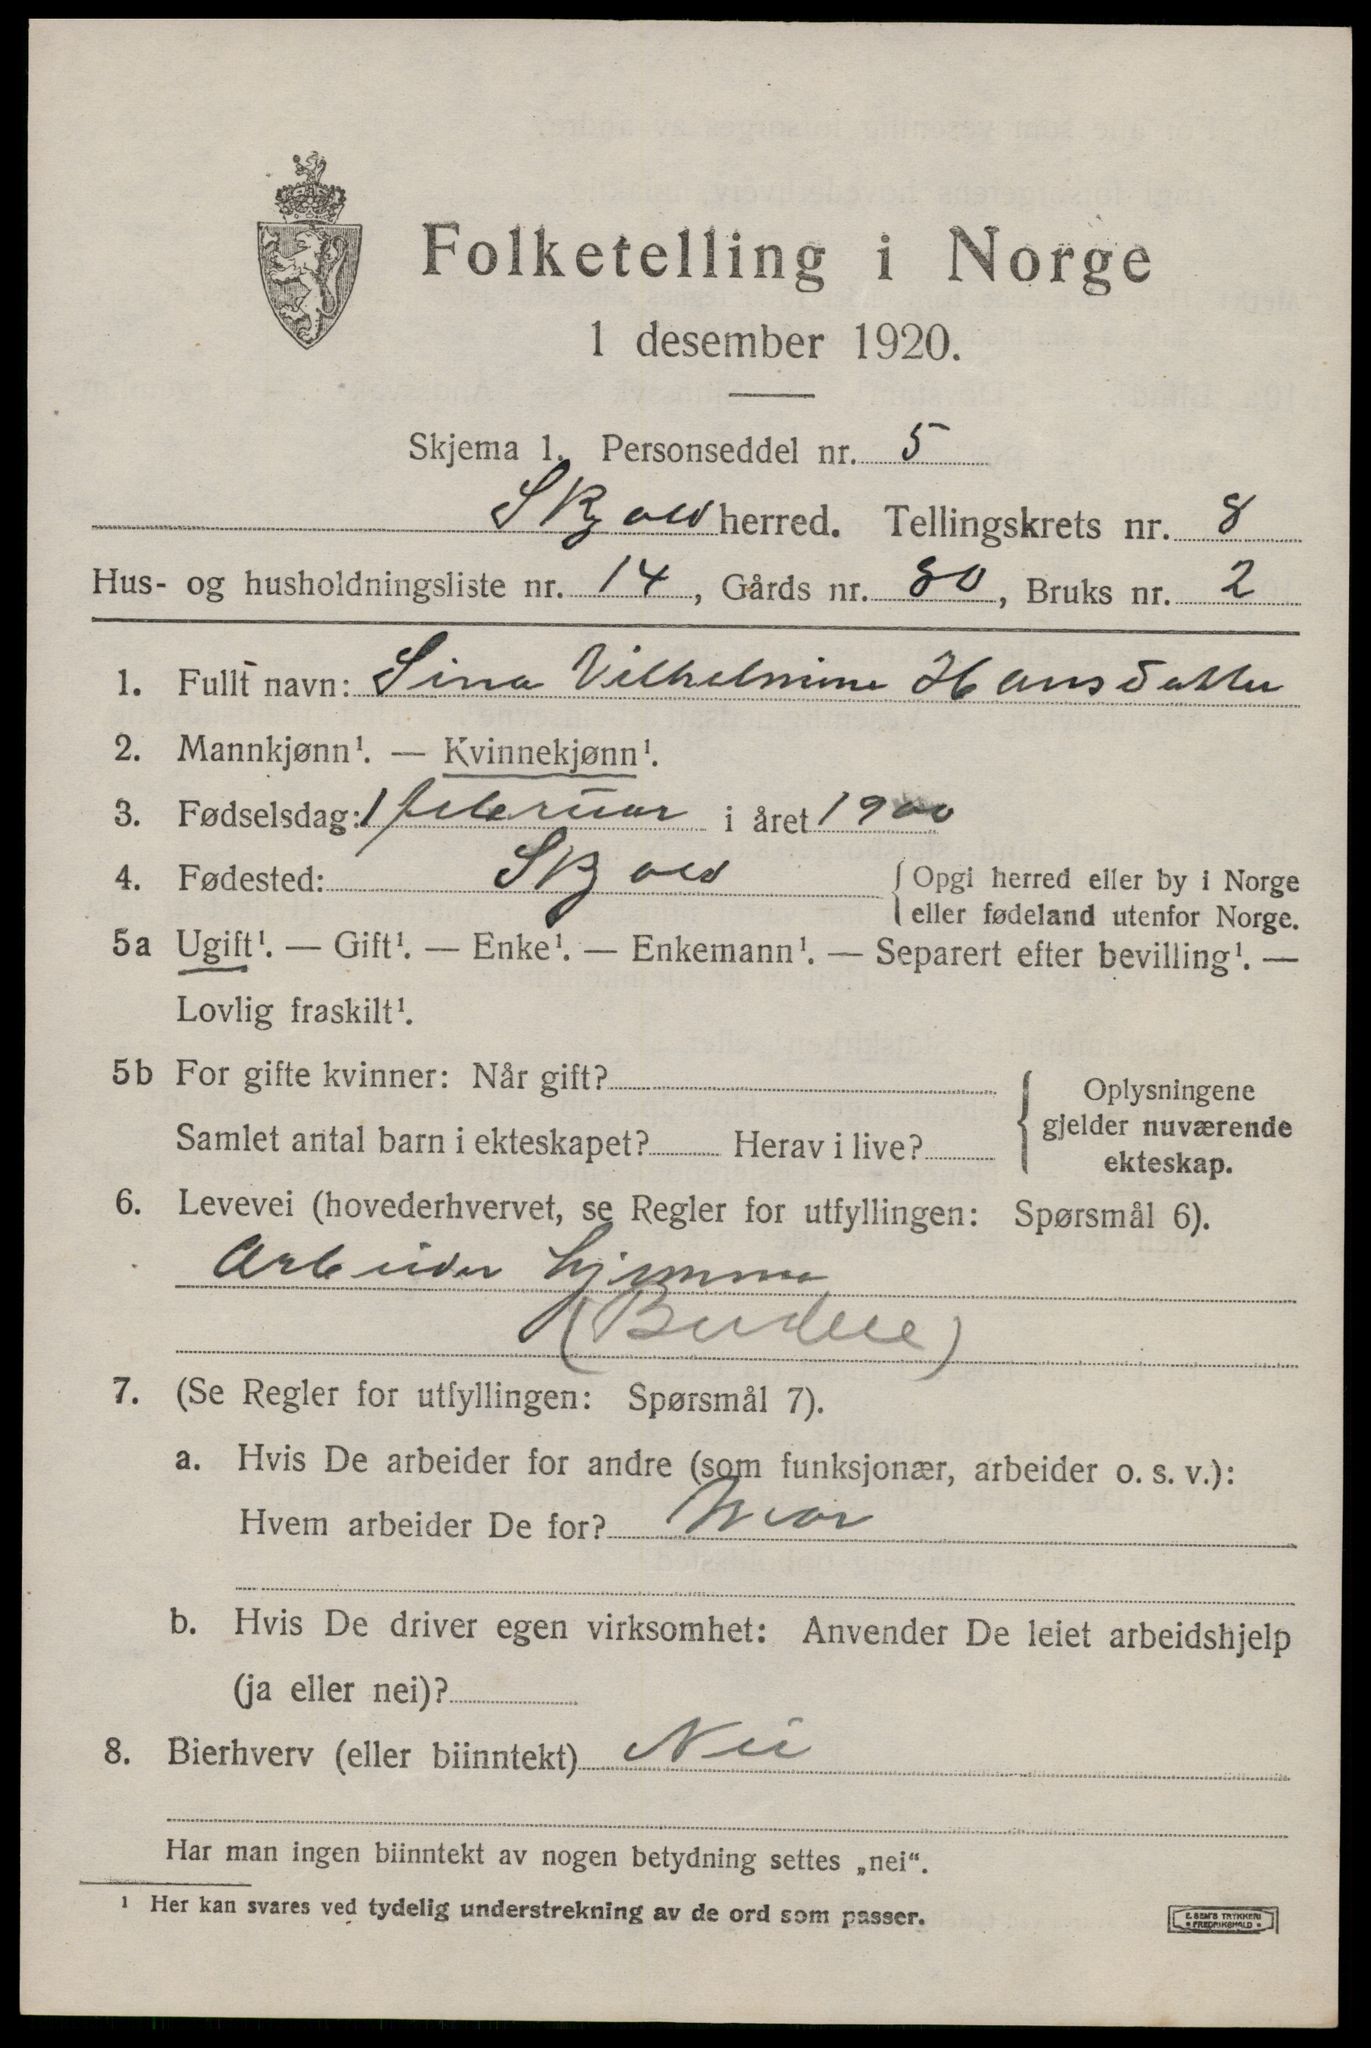 Folketelling i Norge
1 desember 1920.
Skjema 1. Personseddel nr. 5
Skjold herred. Tellingskrets nr. 8
Hus- og husholdningsliste nr. 14, Gårds nr. 80, Bruks nr. 2
1. Fullt navn: Sina Vilhelmine Hansdatter
2. Mannkjønn¹. — Kvinnekjønn¹.
3. Fødselsdag: 1 februar i året 1900
4. Fødested: Skjold { Opgi herred eller by i Norge
eller fødeland utenfor Norge.
5a Ugift¹. — Gift¹. — Enke¹. — Enkemann¹. — Separert efter bevilling¹. —
Lovlig fraskilt¹.
5b For gifte kvinner: Når gift?
Samlet antal barn i ekteskapet? Herav i live?
{ Oplysningene
gjelder nuværende
ekteskap.
6. Levevei (hovederhvervet, se Regler for utfyllingen: Spørsmål 6).
Arbeider hjemme
(Budeie)
7. (Se Regler for utfyllingen: Spørsmål 7).
a. Hvis De arbeider for andre (som funksjonær, arbeider o. s. v.):
Hvem arbeider De for? Mor
b. Hvis De driver egen virksomhet: Anvender De leiet arbeidshjelp
(ja eller nei)?
8. Bierhverv (eller biinntekt) Nei
Har man ingen biinntekt av nogen betydning settes „nei“.
¹ Her kan svares ved tydelig understrekning av de ord som passer.
E. SEM'S TRYKKERI
FREDRIKSHALD